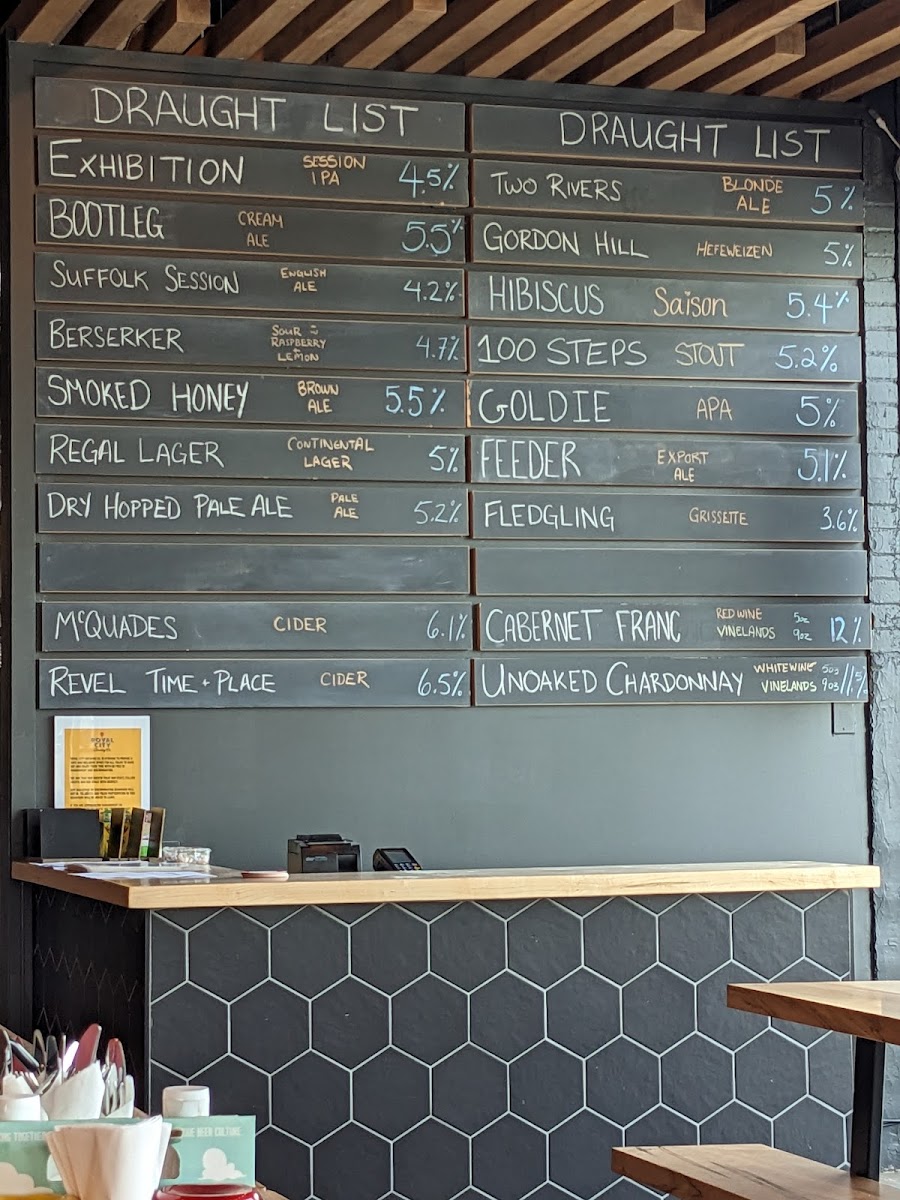 DRAUGHT LIST
EXHIBITION SESSION IPA 4.5%
BOOTLEG CREAM ALE 5.5%
SUFFOLK SESSION ENGLISH ALE 4.2%
BERSERKER SOUR RASPBERRY LEMON 4.7%
SMOKED HONEY BROWN ALE 5.5%
REGAL LAGER CONTINENTAL LAGER 5%
DRY HOPPED PALE ALE PALE ALE 5.2%
McQUADES CIDER 6.1%
REVEL TIME + PLACE CIDER 6.5%
DRAUGHT LIST
TWO RIVERS BLONDE ALE 5%
GORDON HILL HEFEWEIZEN 5%
HIBISCUS Saison 5.4%
100 STEPS STOUT 5.2%
GOLDIE APA 5%
FEEDER EXPORT ALE 5.1%
FLEDGLING GRISSETTE 3.6%
CABERNET FRANC RED WINE VINELANDS 5oz 9oz 12%
UNOAKED CHARDONNAY WHITE WINE VINELANDS 5oz 9oz 11.5%
ROYAL CITY
BEER CULTURE